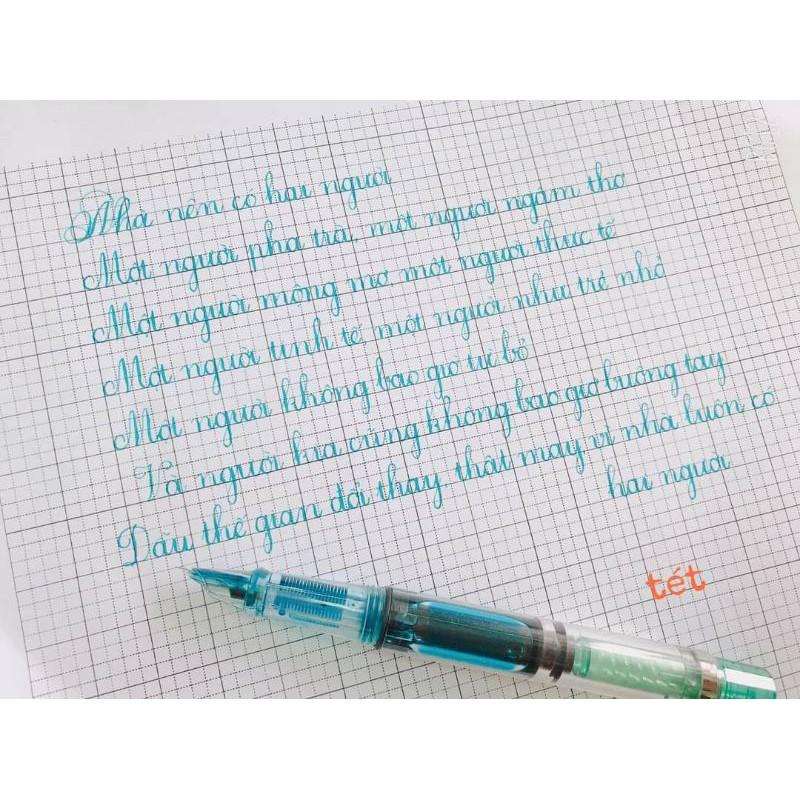 Nhà nên có hai người
Một người pha trà, một người ngâm thơ
Một người mộng mơ một người thực tế
Một người tinh tế, một người như trẻ nhỏ
Một người không bao giờ từ bỏ
Và người kia cũng không bao giờ buông tay
Dẫu thế gian đổi thay thật may vì nhà luôn có
hai người
tét